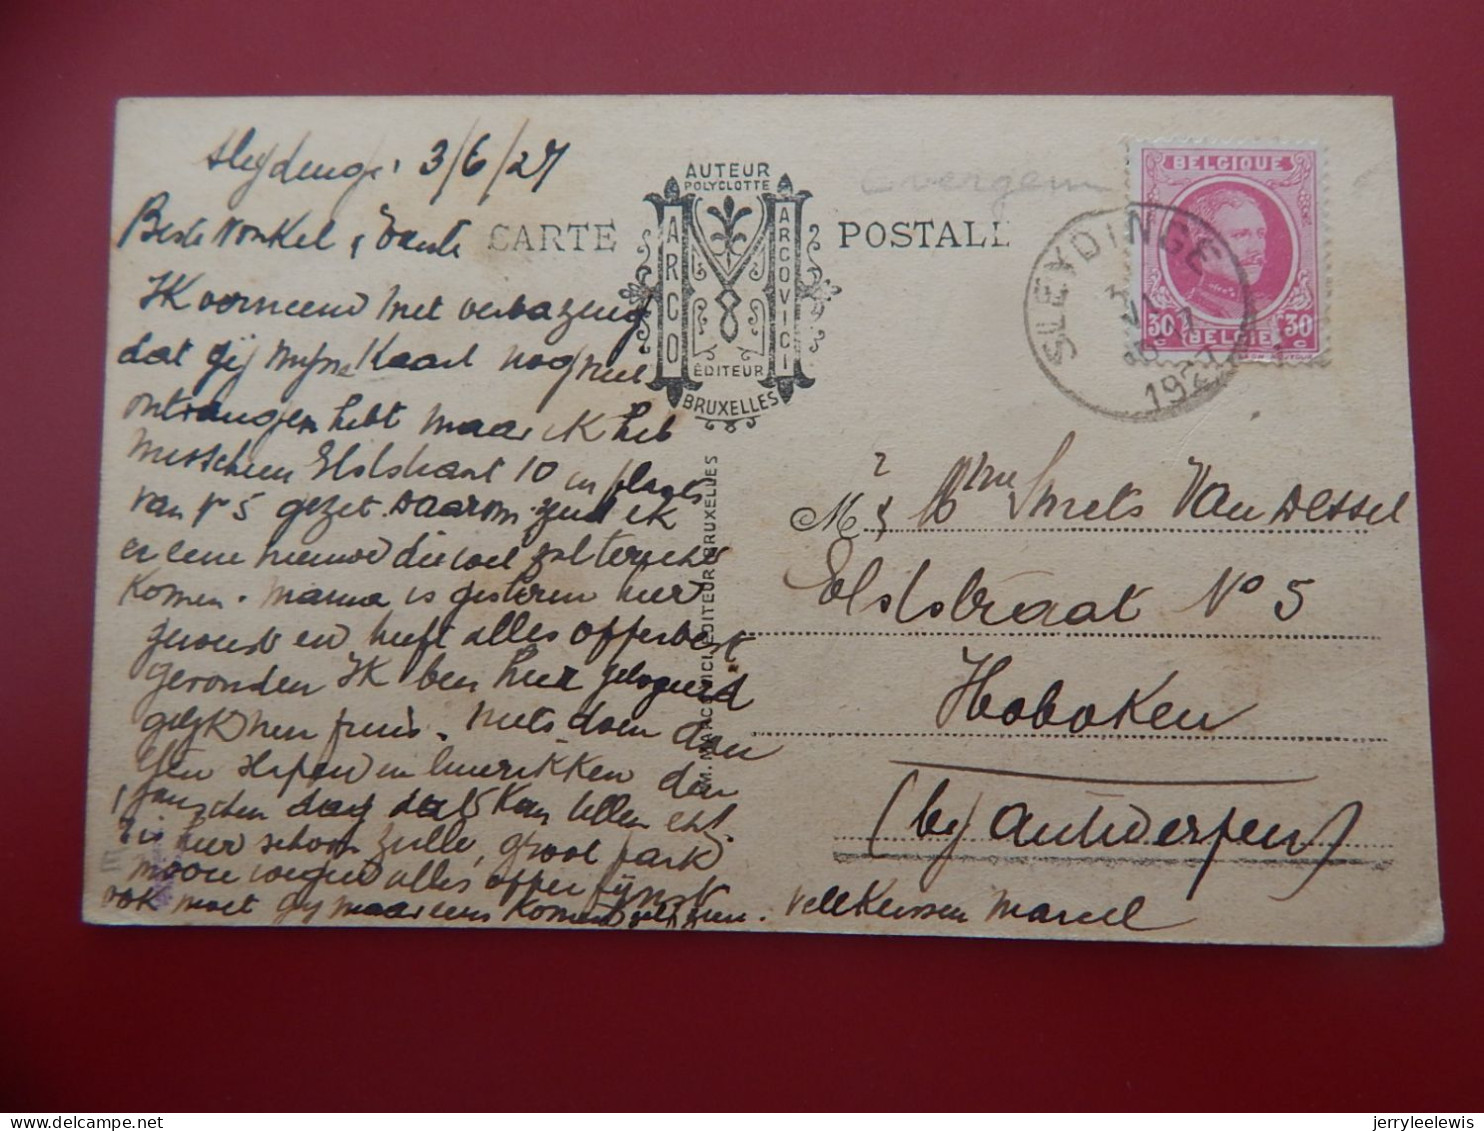 Sleydinge 3/6/27
Beste Nonkel & Tante
CARTE POSTALE
AUTEUR
POLYGLOTTE
ARCO
ARCOVICI
ÉDITEUR
BRUXELLES
Evergem
BELGIQUE
30 c
30 c
BELGIE
SLEYDINGE
1927
Ik verneem met verbazing
dat gij mijne Kaart nog niet
ontvangen hebt maar ik heb
misschien Elststraat 10 in plaats
van Nr 5 gezet. Daarom zend ik
er eene nieuwe die wel zal terecht
komen. Mama is gisteren hier
geweest en heeft alles opperbest
gevonden Ik ben hier gelogeerd
gelijk men prins. Niets doen dan
eten slapen en
den
zie hier schoon zulle, groot park
mooie wegen alles opper fijnst
ook moet gij maar eens komen zien.
M. MARCOVICI, EDITEUR, BRUXELLES
Mr & Mme Smets Van Dessel
Elststraat No 5
Hoboken
(bij Antwerpen)
Marcel
jerryleelewis